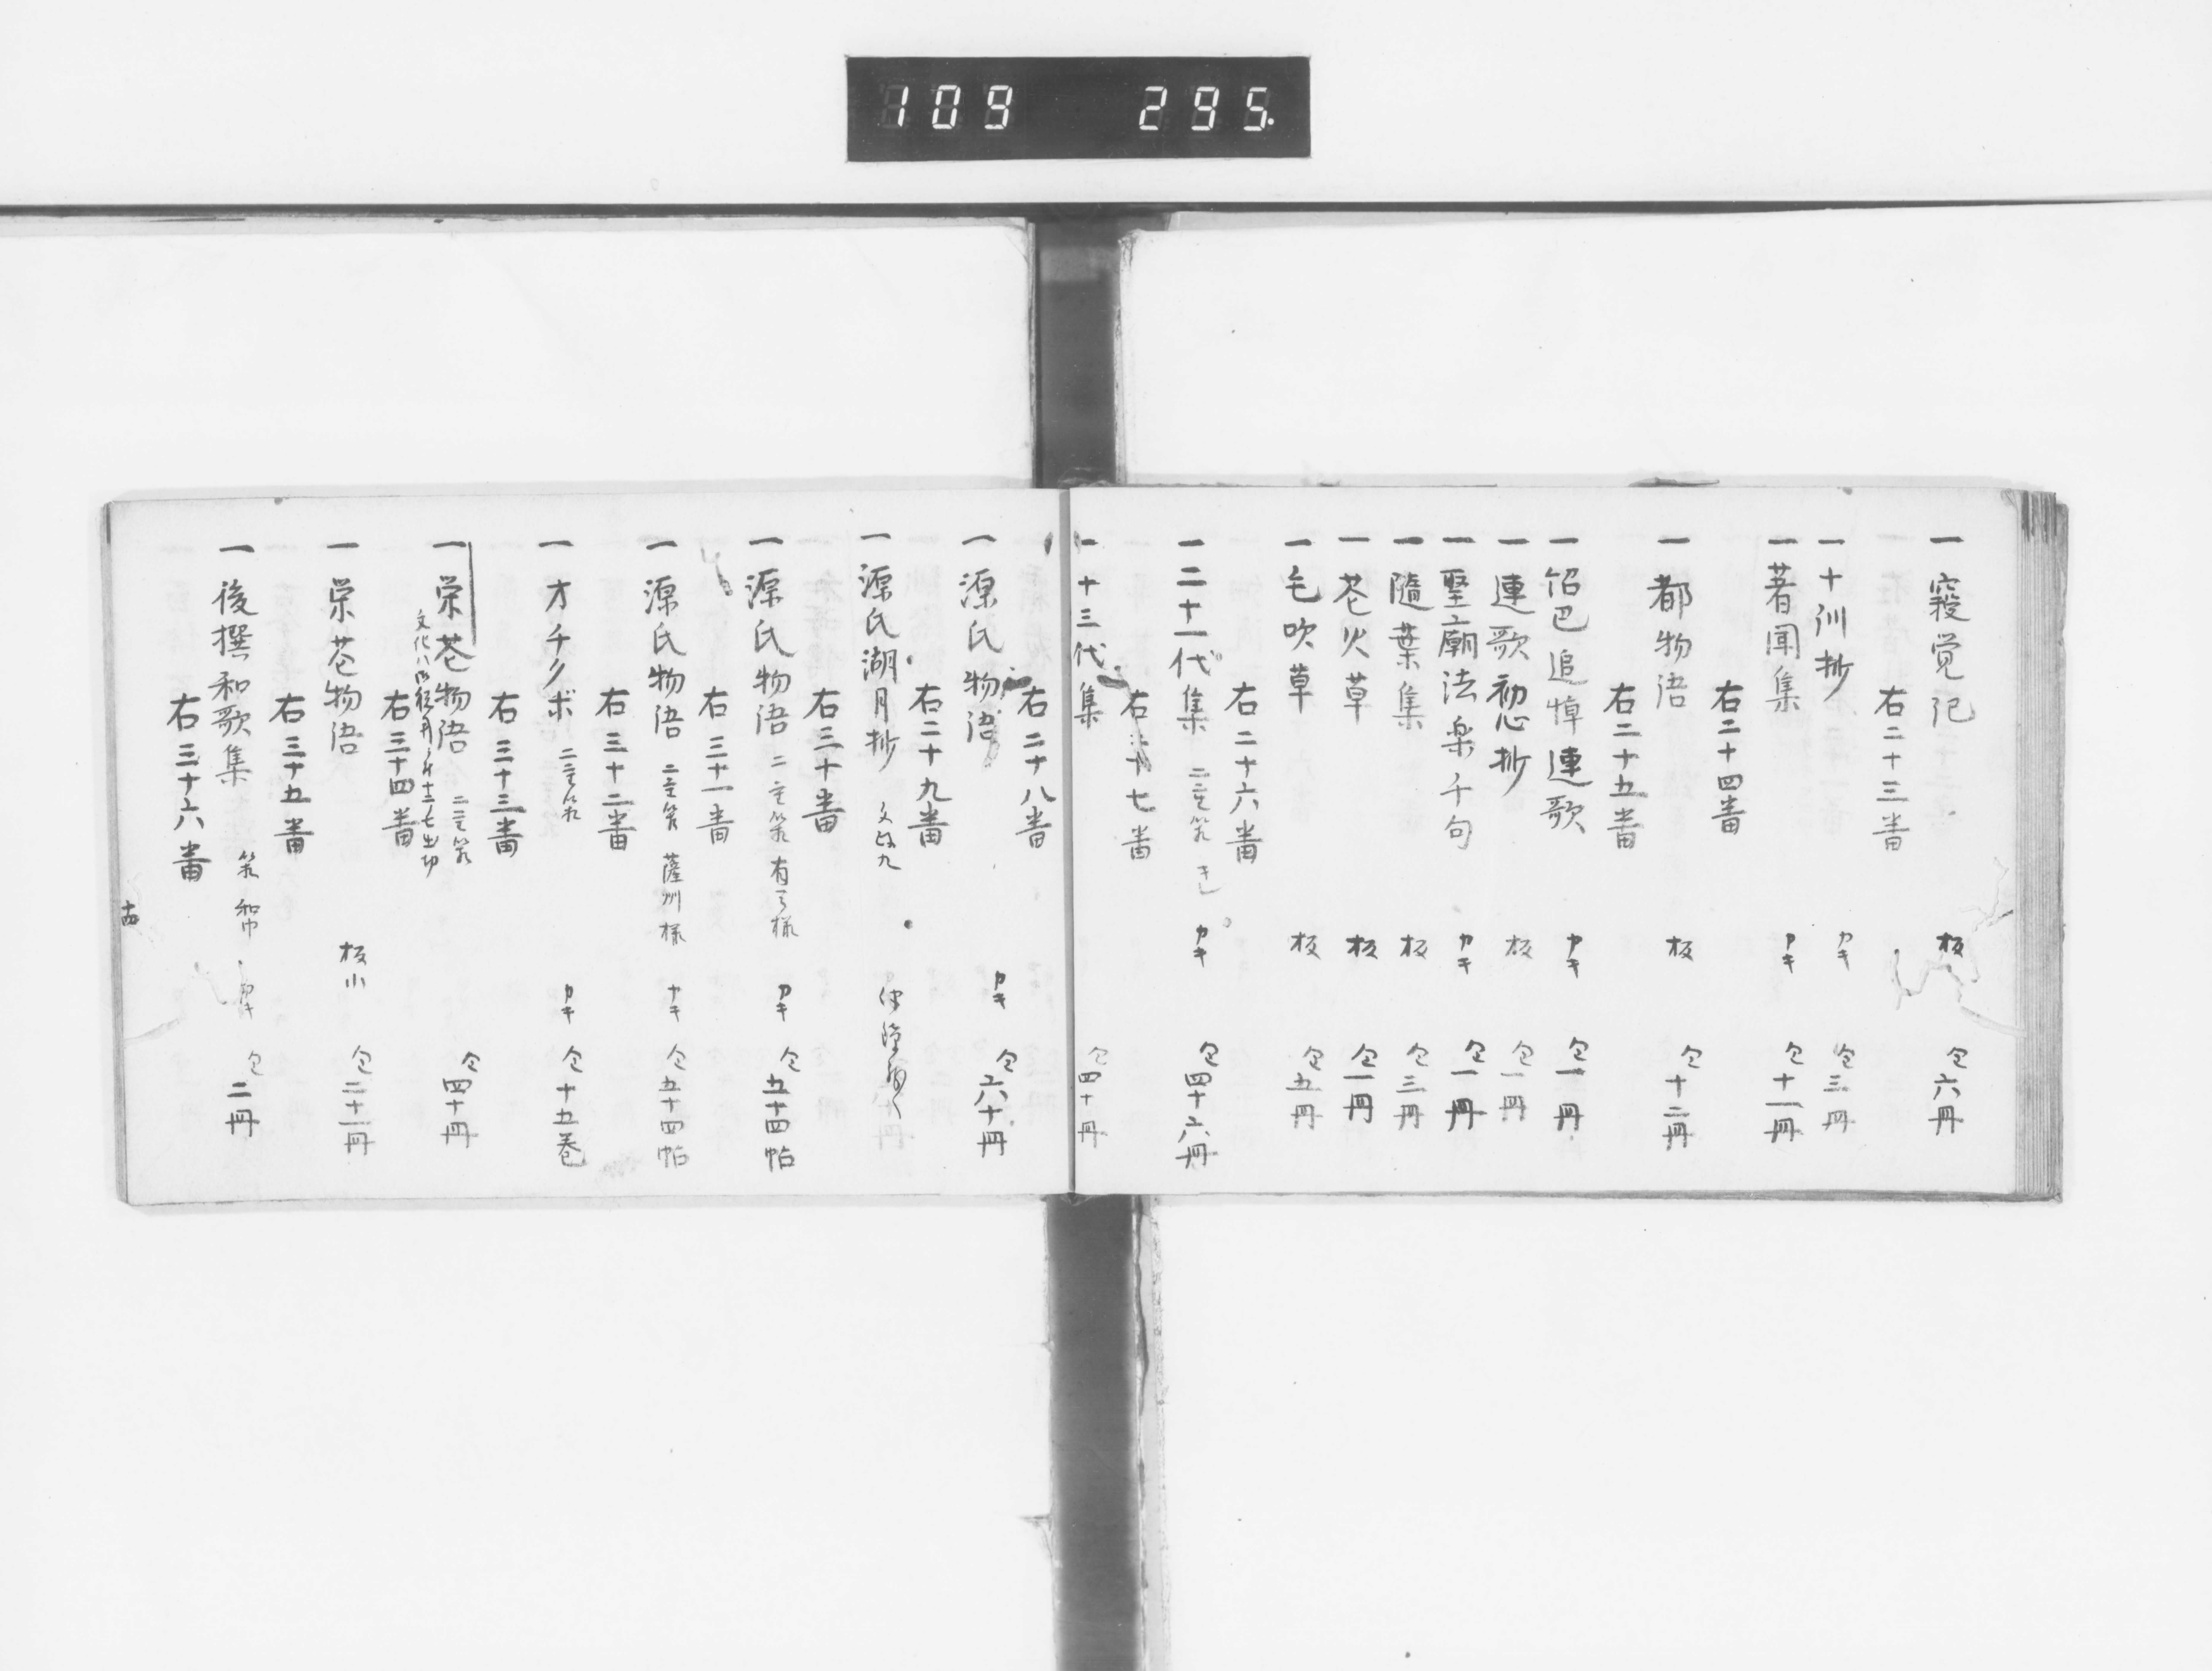 109 295.
一 寝覚記 板 仝六冊
右二十三番
一 十訓抄 カキ 仝三冊
一 著聞集 カキ 仝十一冊
右二十四番
一 都物语 板 仝十二冊
右二十五番
一 绍巴追悼連歌 カキ 仝一冊
一 連歌初心抄 板 仝一冊
一 聖廟法楽千句 カキ 仝一冊
一 隨葉集 板 仝三冊
一 花火草 板 仝一冊
一 毛吹草 板 仝五冊
右二十六番
一 二十一代集 カキ 仝四十六冊
右二十七番
一 十三代集 仝四十冊
右二十八番
一 源氏物语 カキ 仝六十冊
右二十九番
一 源氏湖月抄 文政九
右三十番
一 源氏物语 カキ 仝五十四帖
右三十一番
一 源氏物语 薩州様 カキ 仝五十四帖
右三十二番
一 オチクボ カキ 仝十五巻
右三十三番
一 栄花物语 仝四十冊
右三十四番
一 栄花物语 板小 仝二十一冊
右三十五番
一 後撰和歌集 仝二冊
右三十六番